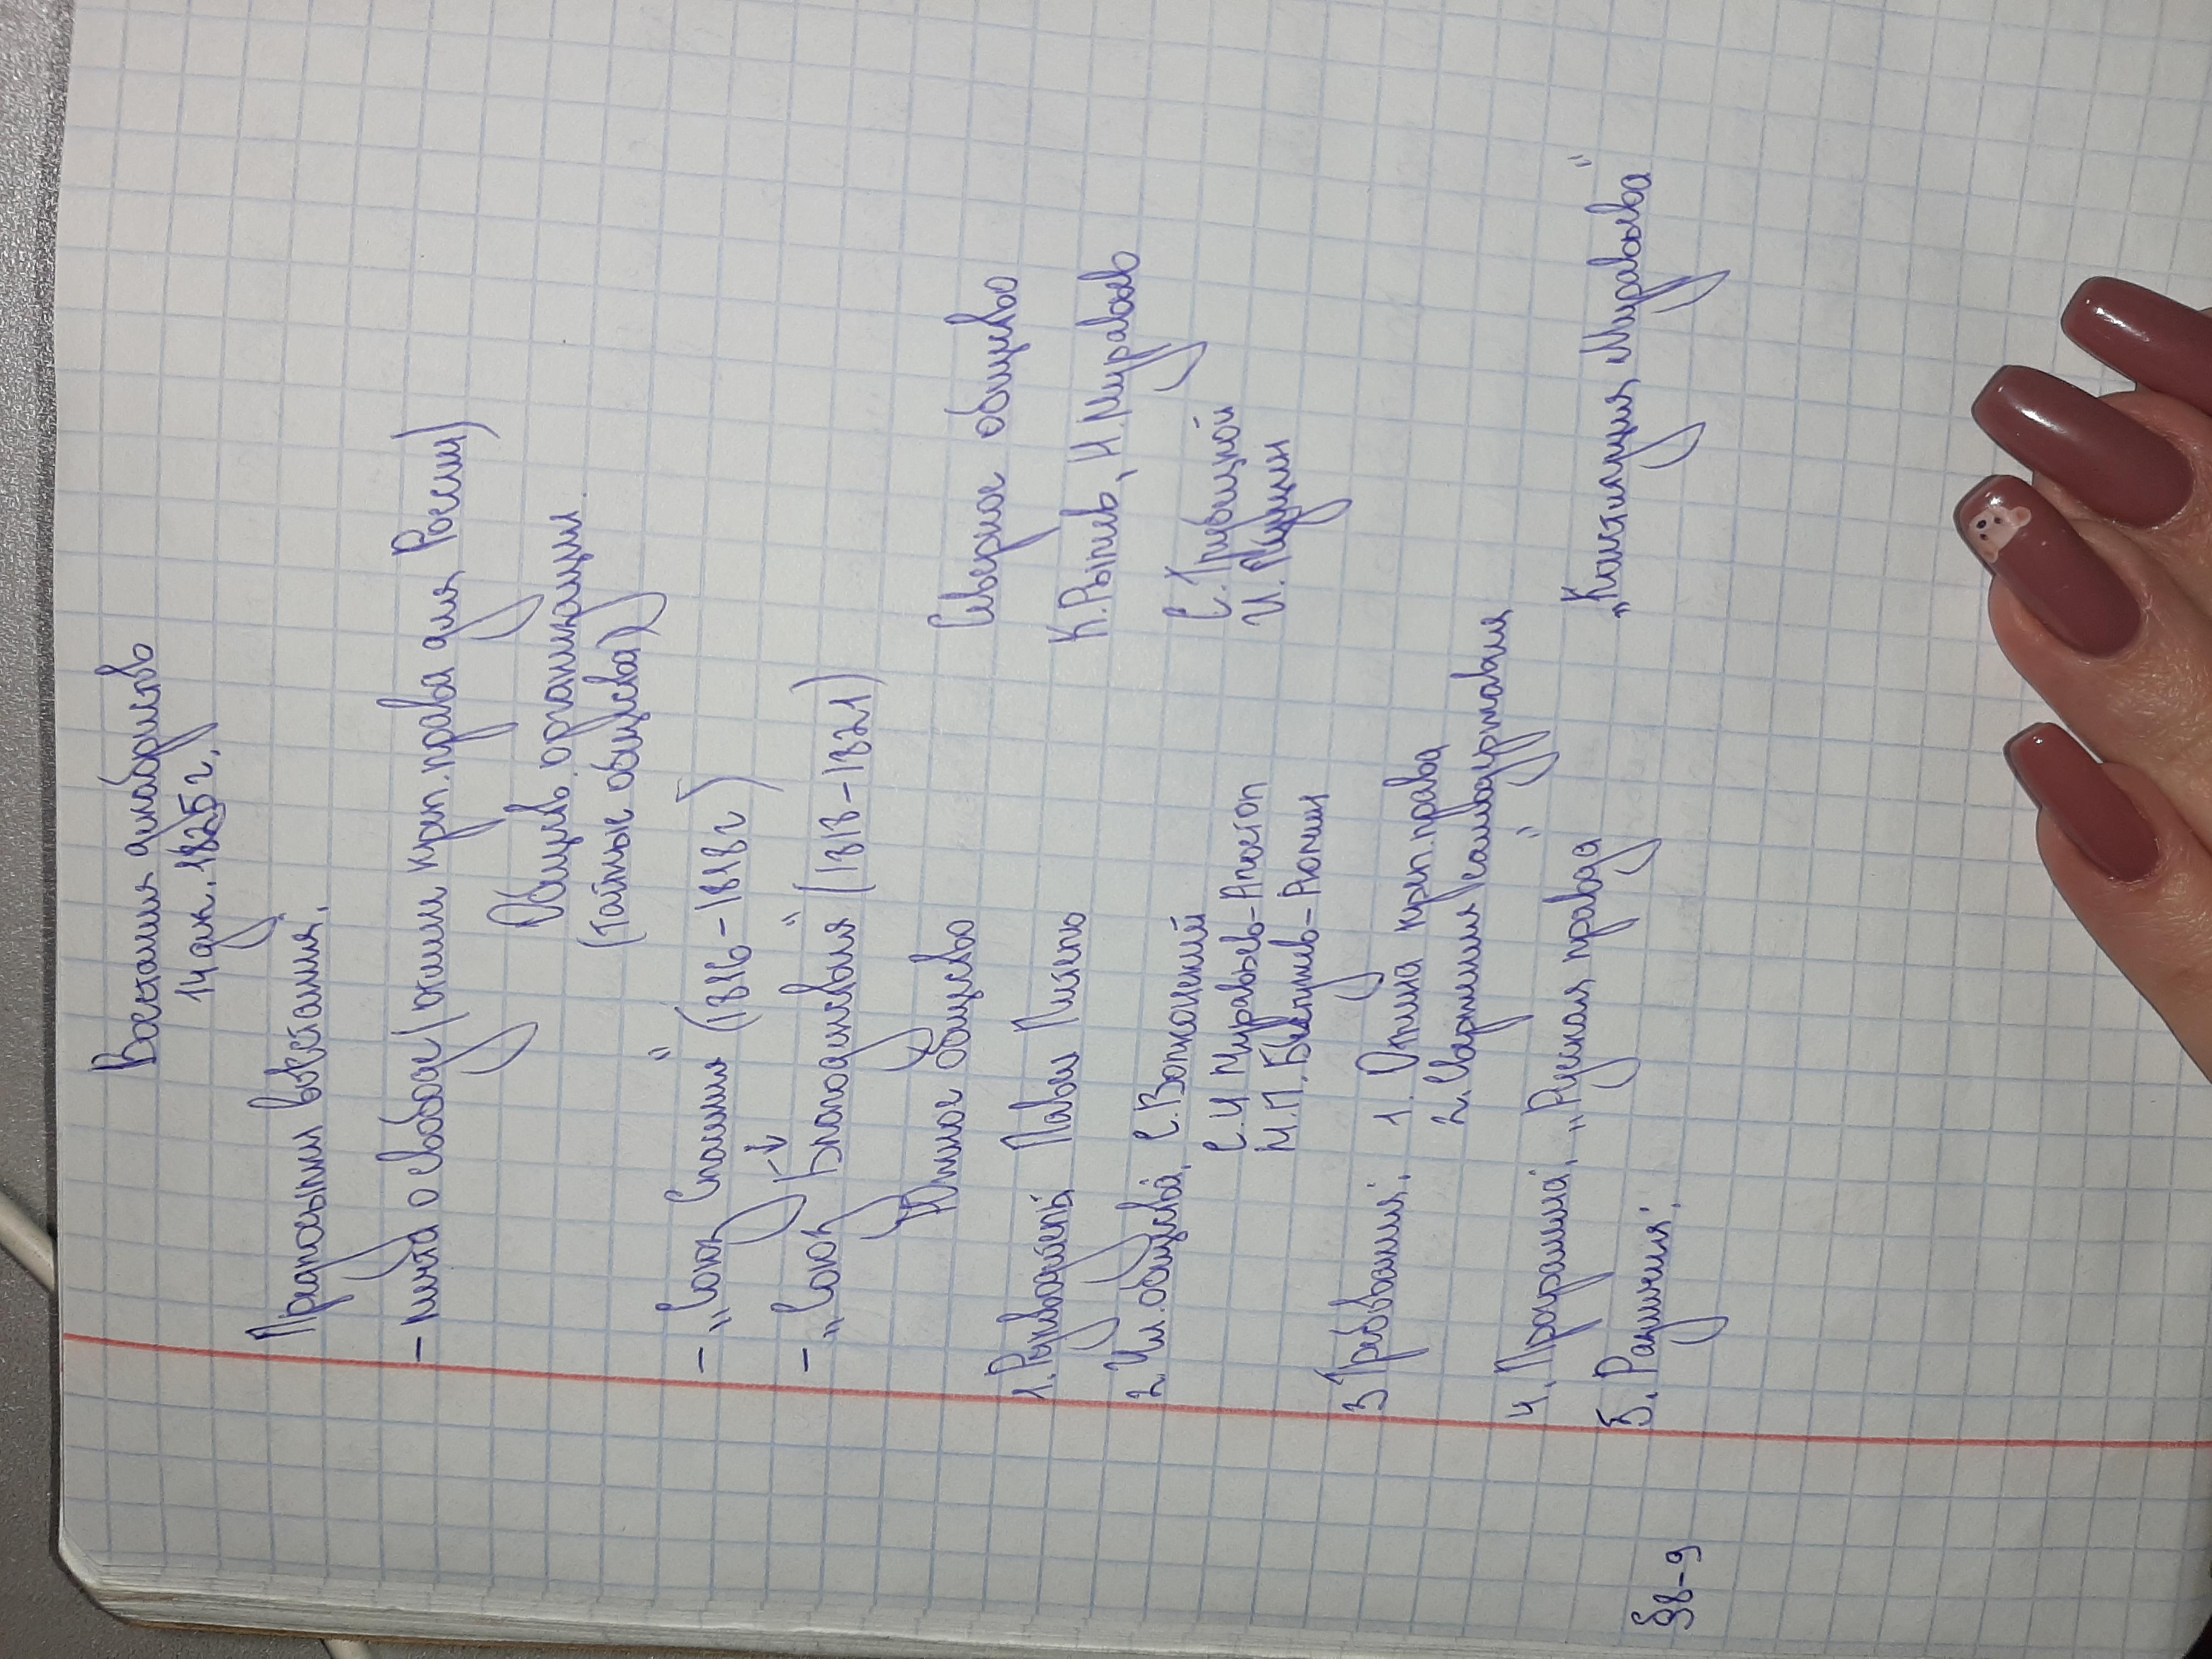 Восстания декабристов
14 дек. 1825 г.
Предпосылки восстания.
- мечта о свободе (отмены креп. права для России)
Обществ. организации
(тайные общества)
- „Союз Спасения" (1816-1818г)
- „Союз Благоденствия" (1818-1821)
Южное общество Северное общество
1. Руководитель Павел Пестель К. Рылеев, Н. Муравьев
2. Чл. общества С. Волконский С. Трубецкой
С. И Муравьев-Апостол И. Пущин
М. П. Бестужев-Рюмин
3 Требования: 1. Отмена креп. права
2. Свержения самодержавия
4. Программа: „Русская правда" „Конституция Муравьева"
5. Различия:
§8-9